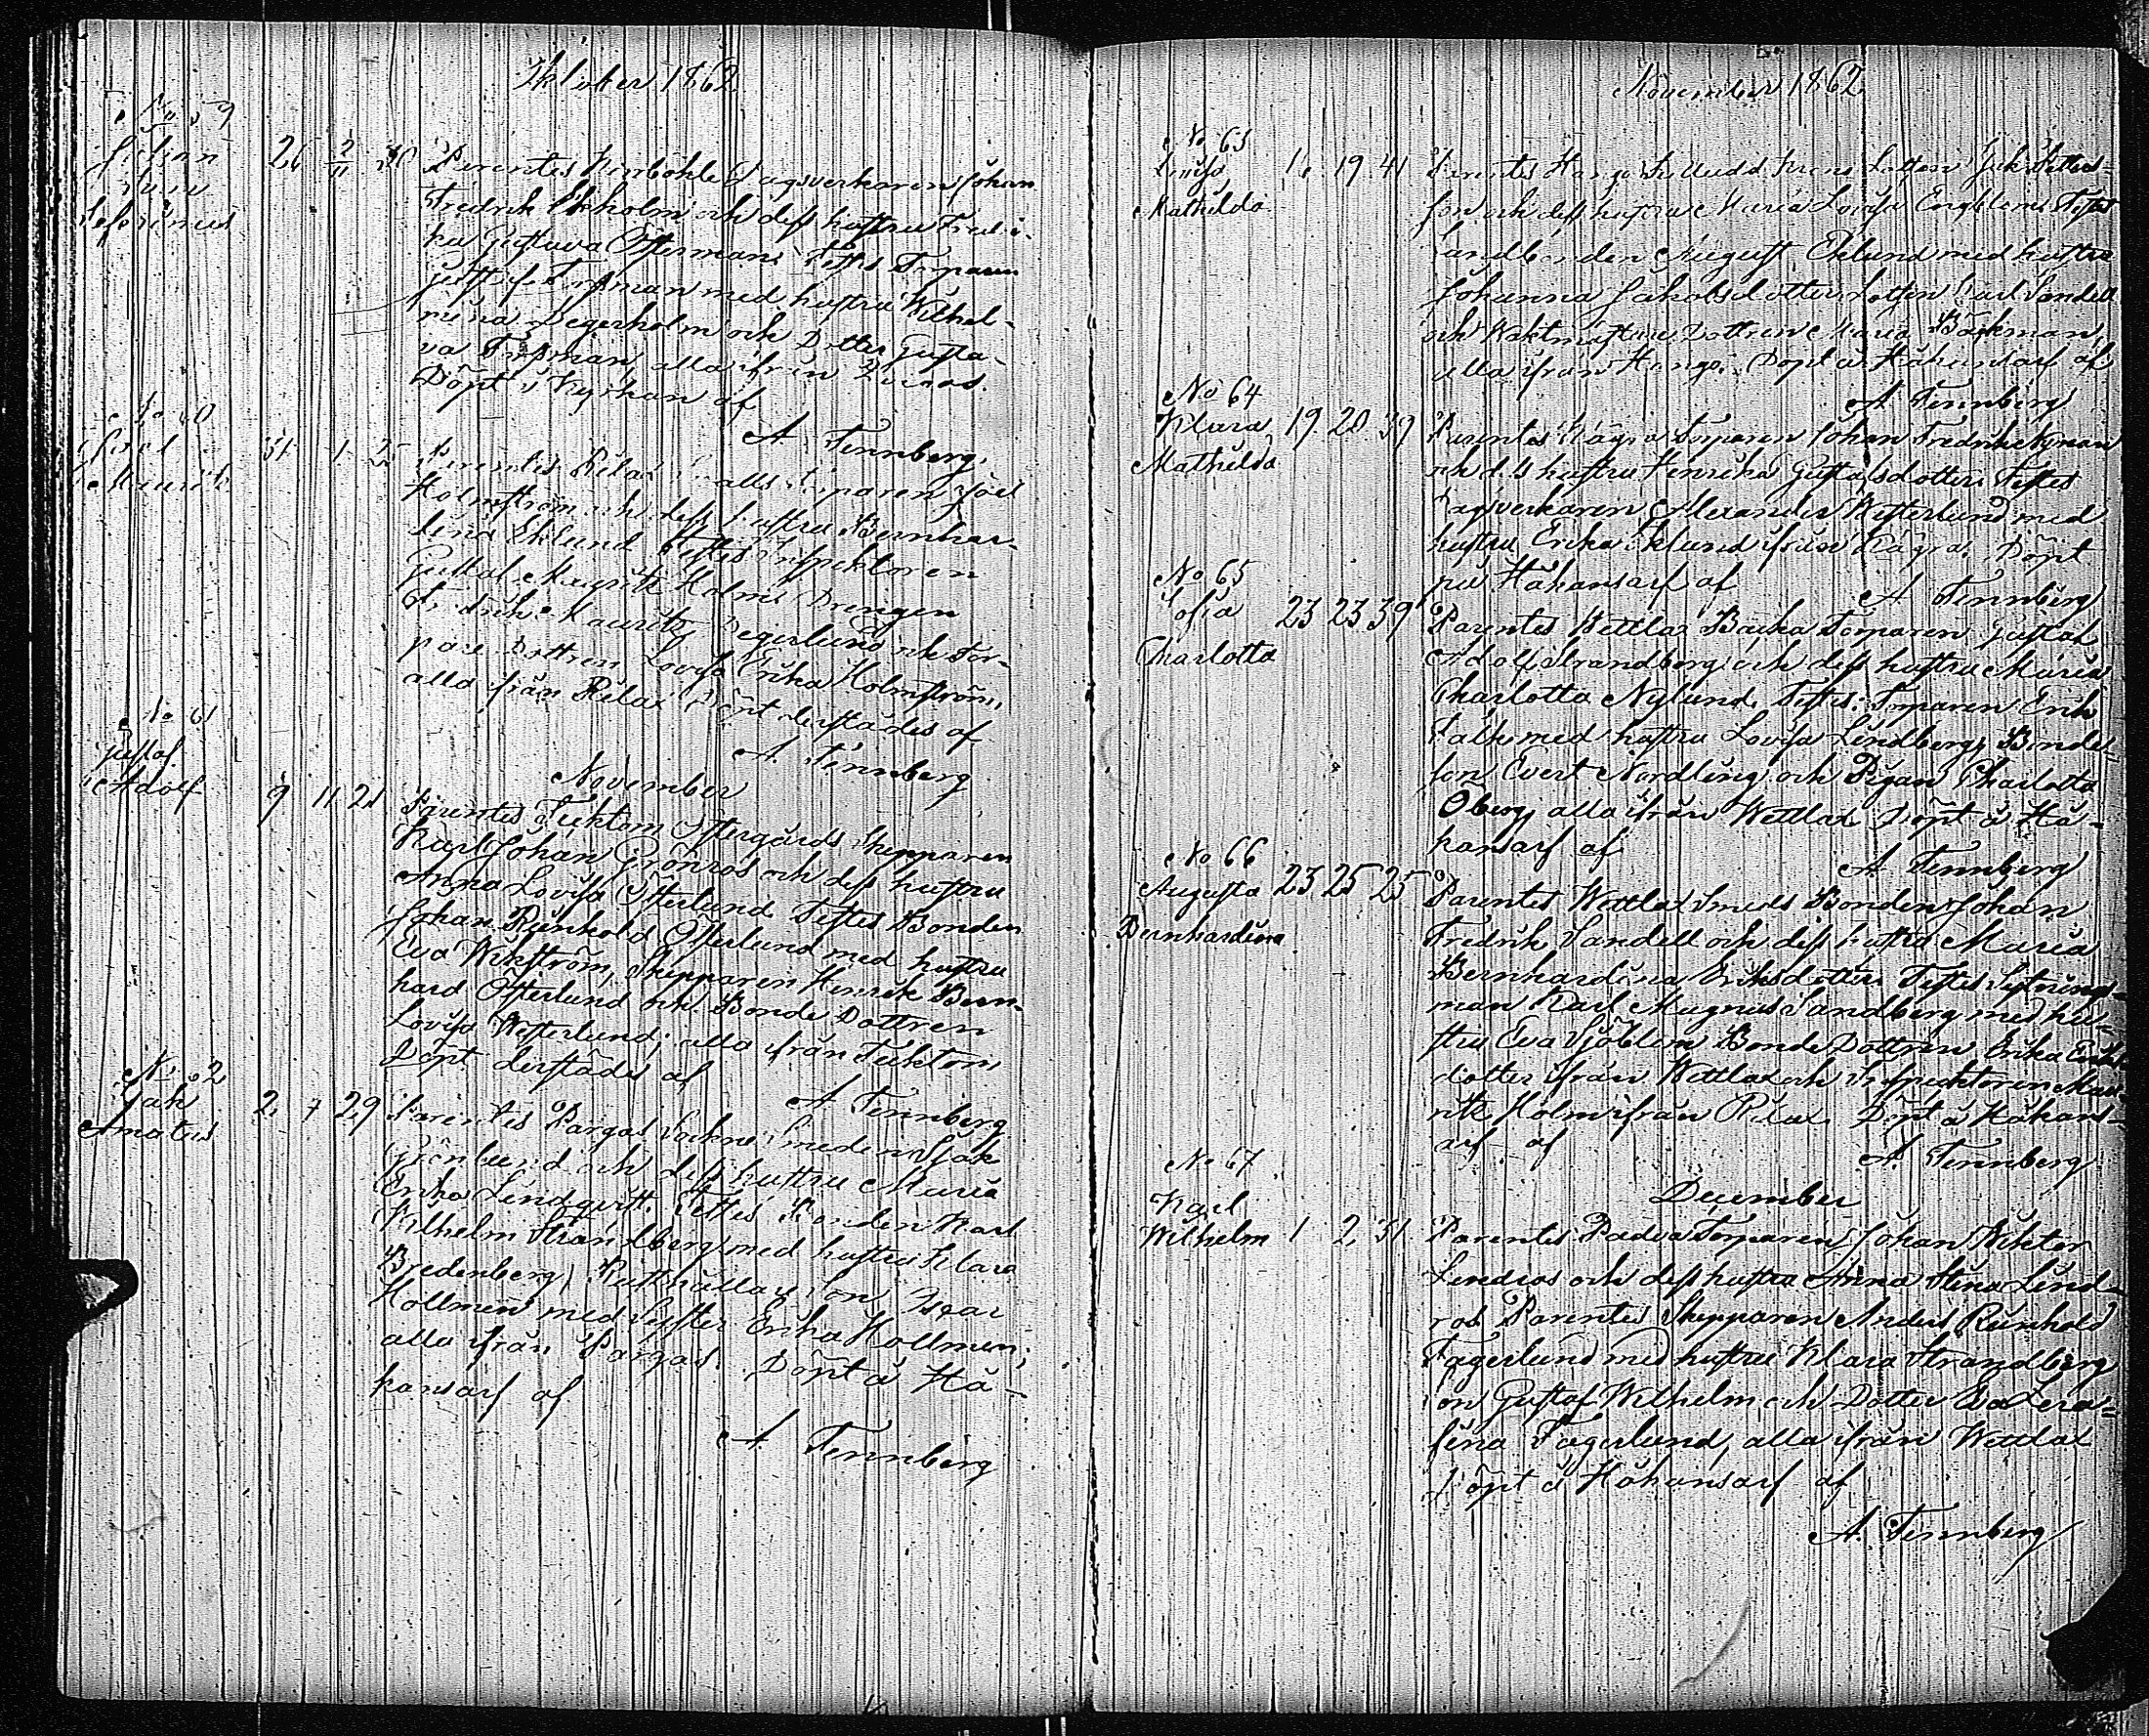 Oktober 1862
No 59
Johan
Sefirinus
26 2/11 30 Parentes Norrböhle Dagsverkaren Johan
Fredrik Ekholm och dess hustru Fredri-
ka Gustava Östermans Testes Torparen
med hustru Wilhel-
mina Degerholm och Dotter Gusta-
va alla ifrån
Döpt i Kyrkan af
A. Tennberg
No 60
Mauritz
31 1 25 Parentes Rilax torparen Joel
Holmström och dess hustru Bernhar-
dina Eklund Testes Inspektoren
Gustaf Mauritz Holm, Drengen
Fredrik Mauritz Degerlund och Tor-
pare Dottren Lovisa Erika Holmström,
alla ifrån Rilax Döpt derstädes af
A. Tennberg
November
No 61
Gustaf
Adolf
9 11 21 Parentes Tecktom Östergårds Skepparen
Karl Johan Grönros och dess hustru
Anna Lovisa Österlund Testes Bonden
Johan Reinhold Österlund med hustru
Eva Wikström, Skepparen Henrik Bern-
hard Österlund och Bonde Dottren
Lovisa Westerlund; alla ifrån Tecktom
Döpt derstädes af
A. Tennberg
No 62
Isak
Amatus
2 7 29 Parentes Pargas Sockne Smeden Isak
Grönlund och dess hustru Maria
Erika Lindqvist. Testes Bonden Karl
Wilhelm Strandberg med hustru Klara
Bredenberg, Rusthållare Son Oskar
Hollmen med Syster Erika Hollmen;
alla ifrån Pargas. Döpt å Hå-
kansarf af
A. Tennberg
November 1862
No 63
Lovisa
Mathilda
16 19 41 Parentes Hangö Lotsen Isak
son och dess hustru Maria Lovisa Engblom Testes
Landbonden August Eklund med hustru
Johanna Jakobsdotter, Lotsen Karl Sandell
och Waktmästare Dottren Maria Bäckman,
alla ifrån Hangö. Döpt å Håkansarf af
A. Tennberg
No 64
Klara
Mathilda
19 20 39 Parentes Rågra Torparen Johan Fredrik
och dess hustru Henrika Gustafsdotter Testes
Dagsverkaren Alexander Westerlund med
hustru Erika Eklund ifrån Rågra. Döpt
på Håkansarf af
A. Tennberg
No 65
Sofia
Charlotta
23 23 39 Parentes Wettlax Backa Torparen Gustaf
Adolf Strandberg och dess hustru Maria
Charlotta Nylund. Testes: Torparen Erik
Falk med hustru Lovisa Lindberg, Bonde-
son Evert Nordling och Pigan Charlotta
Öberg, alla ifrån Wettlax Döpt å Hå-
kansarf af
A. Tennberg
No 66
Augusta
Bernhardina
23 25 25 Parentes Wettlax Smeds Bonden Johan
Fredrik Sandell och dess hustru Maria
Bernhardina Eriksdotter Testes Sexnings-
man Karl Magnus Sandberg med hu-
stru Eva Sjöblom Bonde Dottren Erika Eriks
dotter ifrån Wettlax och Inspektoren Mau-
ritz Holm ifrån Rilax. Döpt å Håkans-
arf af
A. Tennberg
December
No 67
Karl
Wilhelm
1 2 31 Parentes Padva Torparen Johan Wiktor
Lindros och dess hustru Anna Stina Lind-
ros Parentes Skepparen Anders Reinhold
Fagerlund med hustru Klara Strandberg
Son Gustaf Wilhelm och Dotter Eva Sera-
fina Fagerlund, alla ifrån Wettlax
Döpt å Håkansarf af
A. Tennberg